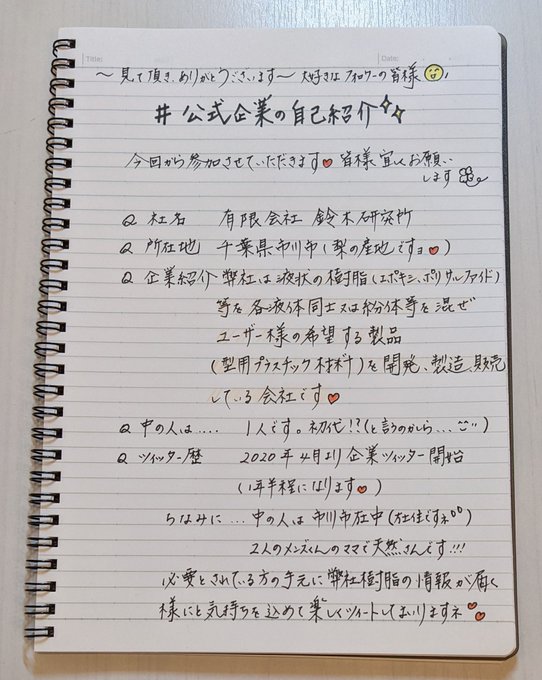 Title:
Date:
～見て頂き、ありがとうございます～ 大好きなフォロワーの皆様
# 公式企業の自己紹介
今回から参加させていただきます 皆様 宜しくお願い
します
Q 社名 有限会社 鈴木研究所
Q 所在地 千葉県市川市(梨の産地ですョ)
Q 企業紹介 弊社は液状の樹脂(エポキシ、ポリサルファイド)
等を各液体同士又は紛体等を混ぜ
ユーザー様の希望する製品
(型用プラスチック材料)を開発、製造、販売
している会社です
Q 中の人は‥‥ 1人です。初代!?(と言うのかしら…
Q ツイッター歴 2020年4月より企業ツイッター開始
(1年半程になります)
ちなみに… 中の人は市川市在中(在住ですネ)
2人のメンズくんのママで天然さんです!!!
必要とされている方の手元に弊社樹脂の情報が届く
様にと気持ちを込めて楽しくツイートしておりますネ